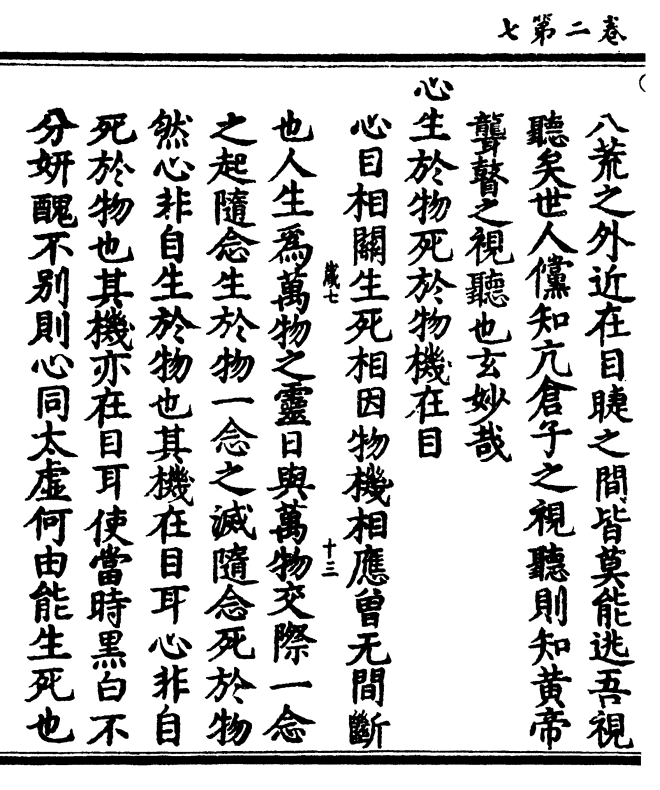 卷二第七
八荒之外近在目睫之間皆莫能逃吾視
聽矣世人儻知亢倉子之視聽則知黃帝
聾瞽之視聽也玄妙哉
心生於物死於物機在目
心目相關生死相因物機相應曾无間斷
歲七
十三
也人生爲萬物之靈日與萬物交際一念
之起隨念生於物一念之滅隨念死於物
然心非自生於物也其機在目耳心非自
死於物也其機亦在目耳使當時黑白不
分妍醜不别則心同太虛何由能生死也